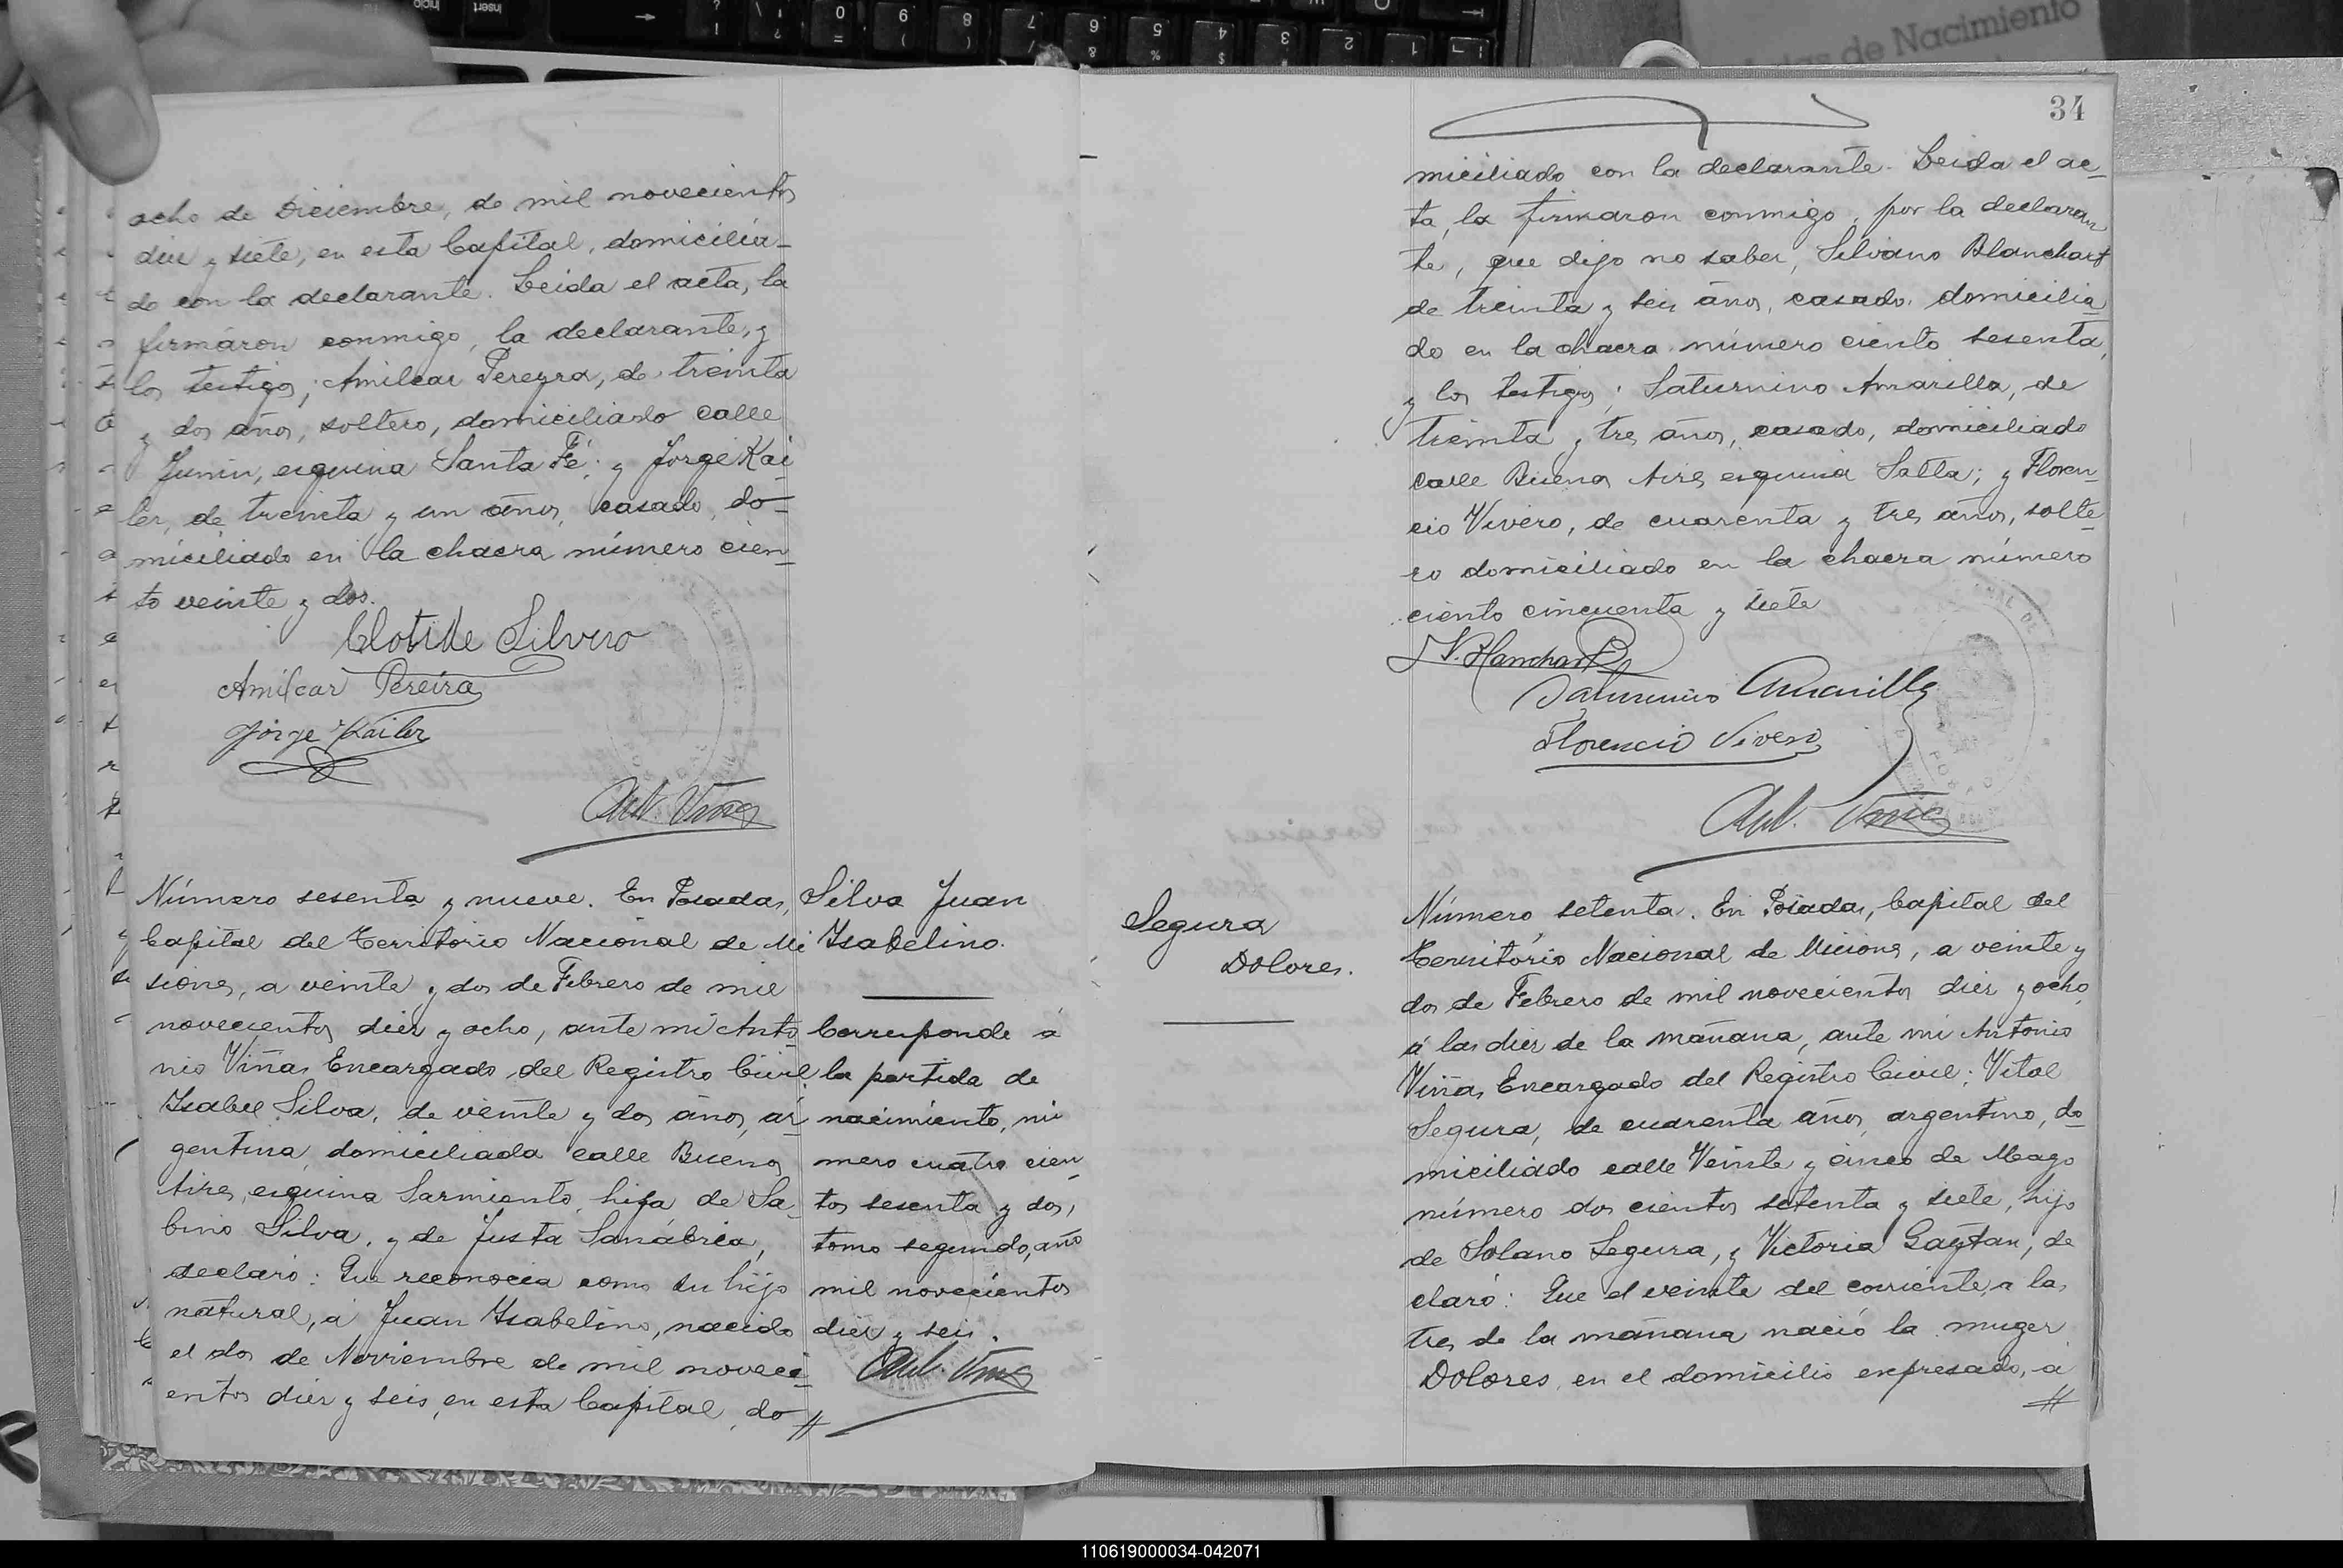 ocho de Diciembre, de mil novecientos
diez y siete, en esta Capital, domicilia-
do con la declarante. Leida el acta, la
firmáron conmigo, la declarante, y
los testigos; Amilcar Pereyra, de treinta
y dos años, soltero, domiciliado calle
Junin, esquina Santa Fé; y Jorge Kai
ler, de treinta y un años, casado, do-
miciliado en la chacra número cien-
to veinte y dos.
Clotilde Silvero
Amilcar Pereira
Jorge Kailer
Ant. Viñas
Número sesenta y nueve. En Posadas,
Capital del Territorio Nacional de Mi
siones, a veinte y dos de Febrero de mil
novecientos diez y ocho, ante mi Anto
nio Viñas Encargado del Registro Civil,
Isabel Silva, de veinte y dos años, ar
gentina, domiciliada calle Buenos
Aires, esquina Sarmiento, hija de Sa-
bino Silva, y de Justa Sanábria,
declaró: Que reconocia como su hijo
natural, a Juan Isabelino, nacido
el dos de Noviembre de mil noveci-
entos diez y seis, en esta Capital, do //
Silva Juan
Isabelino.
Corresponde á
la partida de
nacimiento, nú
mero cuatro cien-
tos sesenta y dos,
tomo segundo, año
mil novecientos
diez y seis.
Ant. Viñas
34
miciliado con la declarante. Leida el ac-
ta, la firmaron conmigo, por la declaran
te, que dijo no saber, Silvano Blanchart
de treinta y seis años, casado, domicilia
do en la chacra número ciento sesenta,
y los testigos; Saturnino Amarilla, de
treinta y tres años, casado, domiciliado
calle Buenos Aires esquina Salta; y Floren-
cio Vivero, de cuarenta y tres años, solte-
ro domiciliado en la chacra número
ciento cincuenta y siete
S. Blanchart
Saturnino Amarilla
Florencio Vivero
Ant. Viñas
Segura
Dolores.
Número setenta. En Posadas, Capital del
Territorio Nacional de Misiones, a veinte y
dos de Febrero de mil novecientos diez y ocho,
á las diez de la mañana, ante mi Antonio
Viñas, Encargado del Registro Civil; Vital
Segura, de cuarenta años, argentino, do
miciliado calle Veinte y cinco de Mayo
número dos cientos setenta y siete, hijo
de Solano Segura, y Victoria Gaytan, de
claró: Que el veinte del corriente, a las
tres de la mañana nació la muger
Dolores, en el domicilio expresado, a
//
de Nacimiento
110619000034-042071